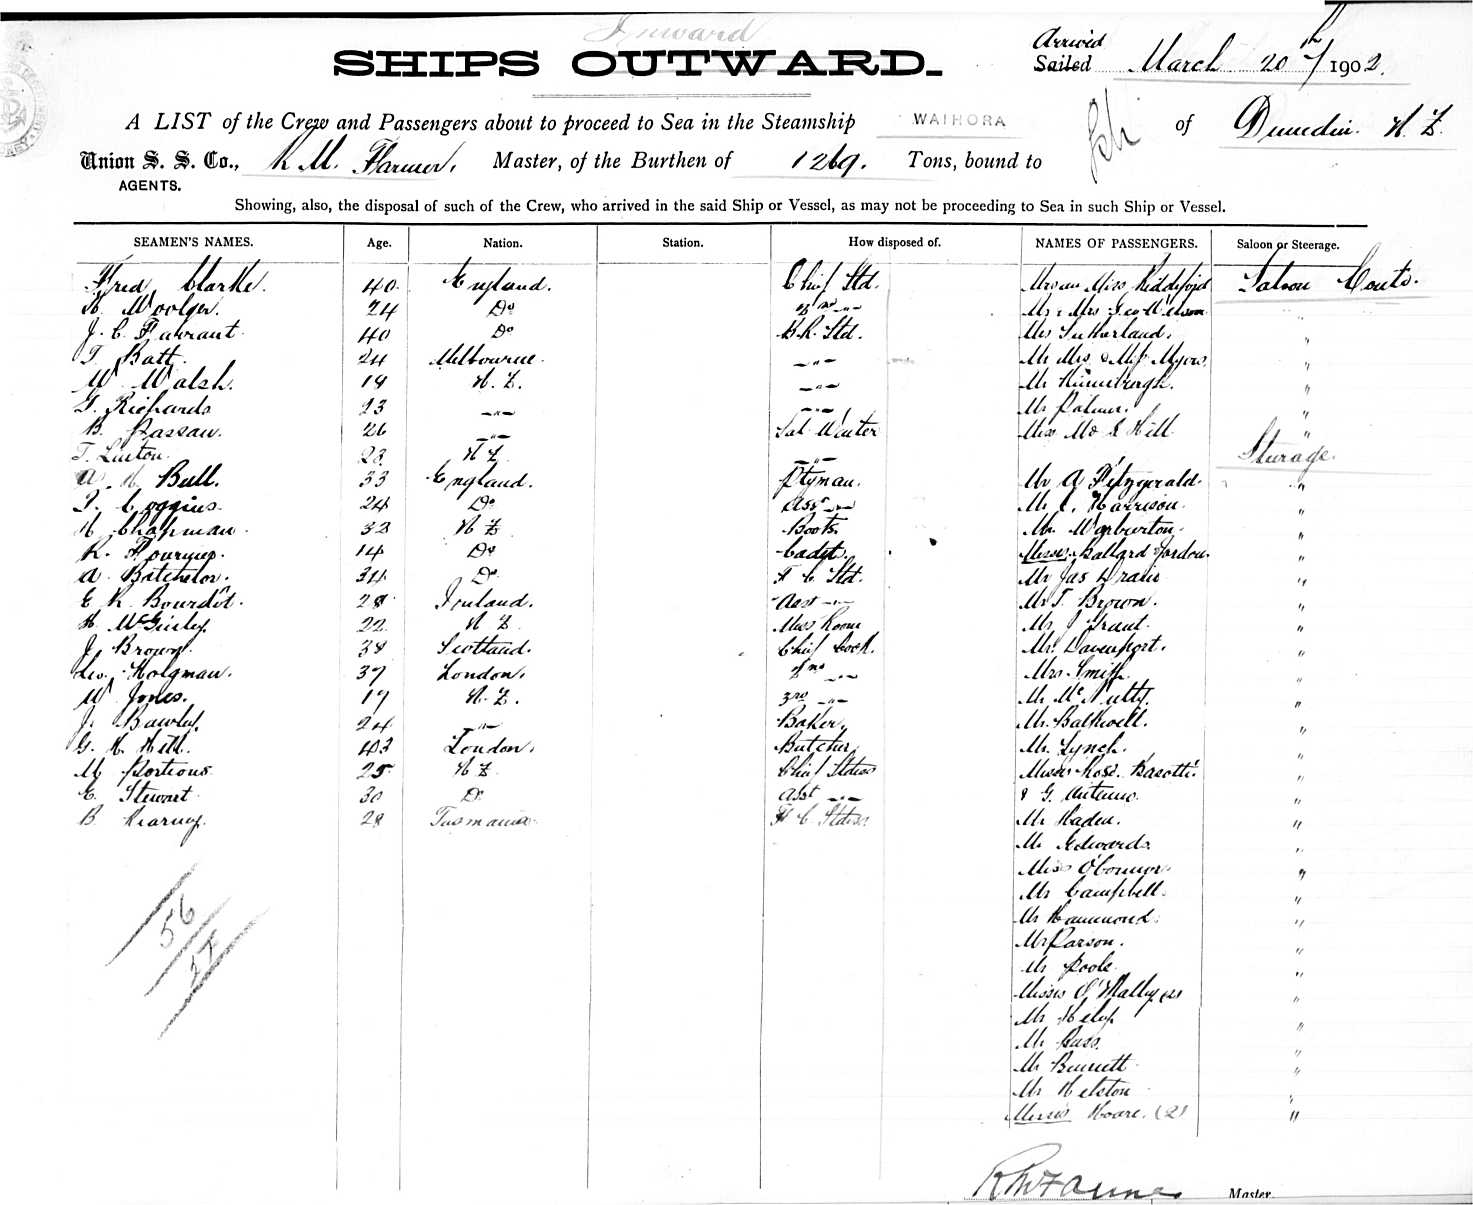 Inward
SHIPS OUTWARD.
Arrived
Sailed March 20th / 1902.
A LIST of the Crew and Passengers about to proceed to Sea in the Steamship WAIHORA of Dunedin. N Z.
Union S. S. Co., R M. Farmer, Master, of the Burthen of 1269. Tons, bound to
AGENTS.
Showing, also, the disposal of such of the Crew, who arrived in the said Ship or Vessel, as may not be proceeding to Sea in such Ship or Vessel.
SEAMEN'S NAMES. Age. Nation. Station. How disposed of. NAMES OF PASSENGERS. Saloon or Steerage.
Fred Clarke. 40. England. Chief Std. Miss Riddiford Saloon
Woolger. 24 Do 2nd -"- Mr & Mrs "
J. C. Farrant. 40 Do B.R. Std. Mrs Sutherland. "
T Batt. 24 Melbourne. -"- Mr Mrs & Miss Myers. "
W Walsh. 19 N. Z. -"- Mr "
G. Richards 23 -"- -"- Mr Palmer. "
B. Passau. 26 -"- Sal. Waiter Miss Hill "
T. Linton. 23 N Z -"- Steerage.
A. H. Bull. 33 England. Ptyman. Mr A Fitzgerald. "
T. Coggins. 24 Do Asst -"- Mr C. Harrison. "
H Chapman 32 N Z Boots. Mr Warburton. "
R. 14 Do Cadet. Messrs Ballard & Jordon. "
A. Batchelor. 34 Do F C Std. Mr Jas Drain "
E R. Bourdôt. 28 Ireland. Asst -"- Mr T. Brown. "
H. McGinley. 22 N Z. Mess Room Mr J Grant. "
J. Brown. 38 Scotland. Chief Cook. Mr. Davenport. "
Geo. Holgman. 37 London. 2nd -"- Mrs Smith. "
W Jones. 17 N. Z. 3rd -"- Mr McNutty. "
J. Bawley. 24 -"- Baker. Mr. Balkwell. "
G. H. Hill. 43 London. Butcher Mr. Lynch. "
M Porteous. 25 N Z Chief Stdess Messrs Rose. Basotti. "
E. Stewart. 30 Do Asst -"- & G. Antonio. "
B. Kearney. 28 Tasmania. F C Stdess Mr Haden. "
Mr Edwards. "
Miss O'Connor. "
Mr Campbell. "
Mr Hammond. "
Mr Parson. "
Mr Poole "
Misses O'Malley (2) "
Mr Hely "
Mr Pass. "
Mr Bennett "
Mr Helston "
Misses Hoare. (2) "
56
27
R M Farmer Master.